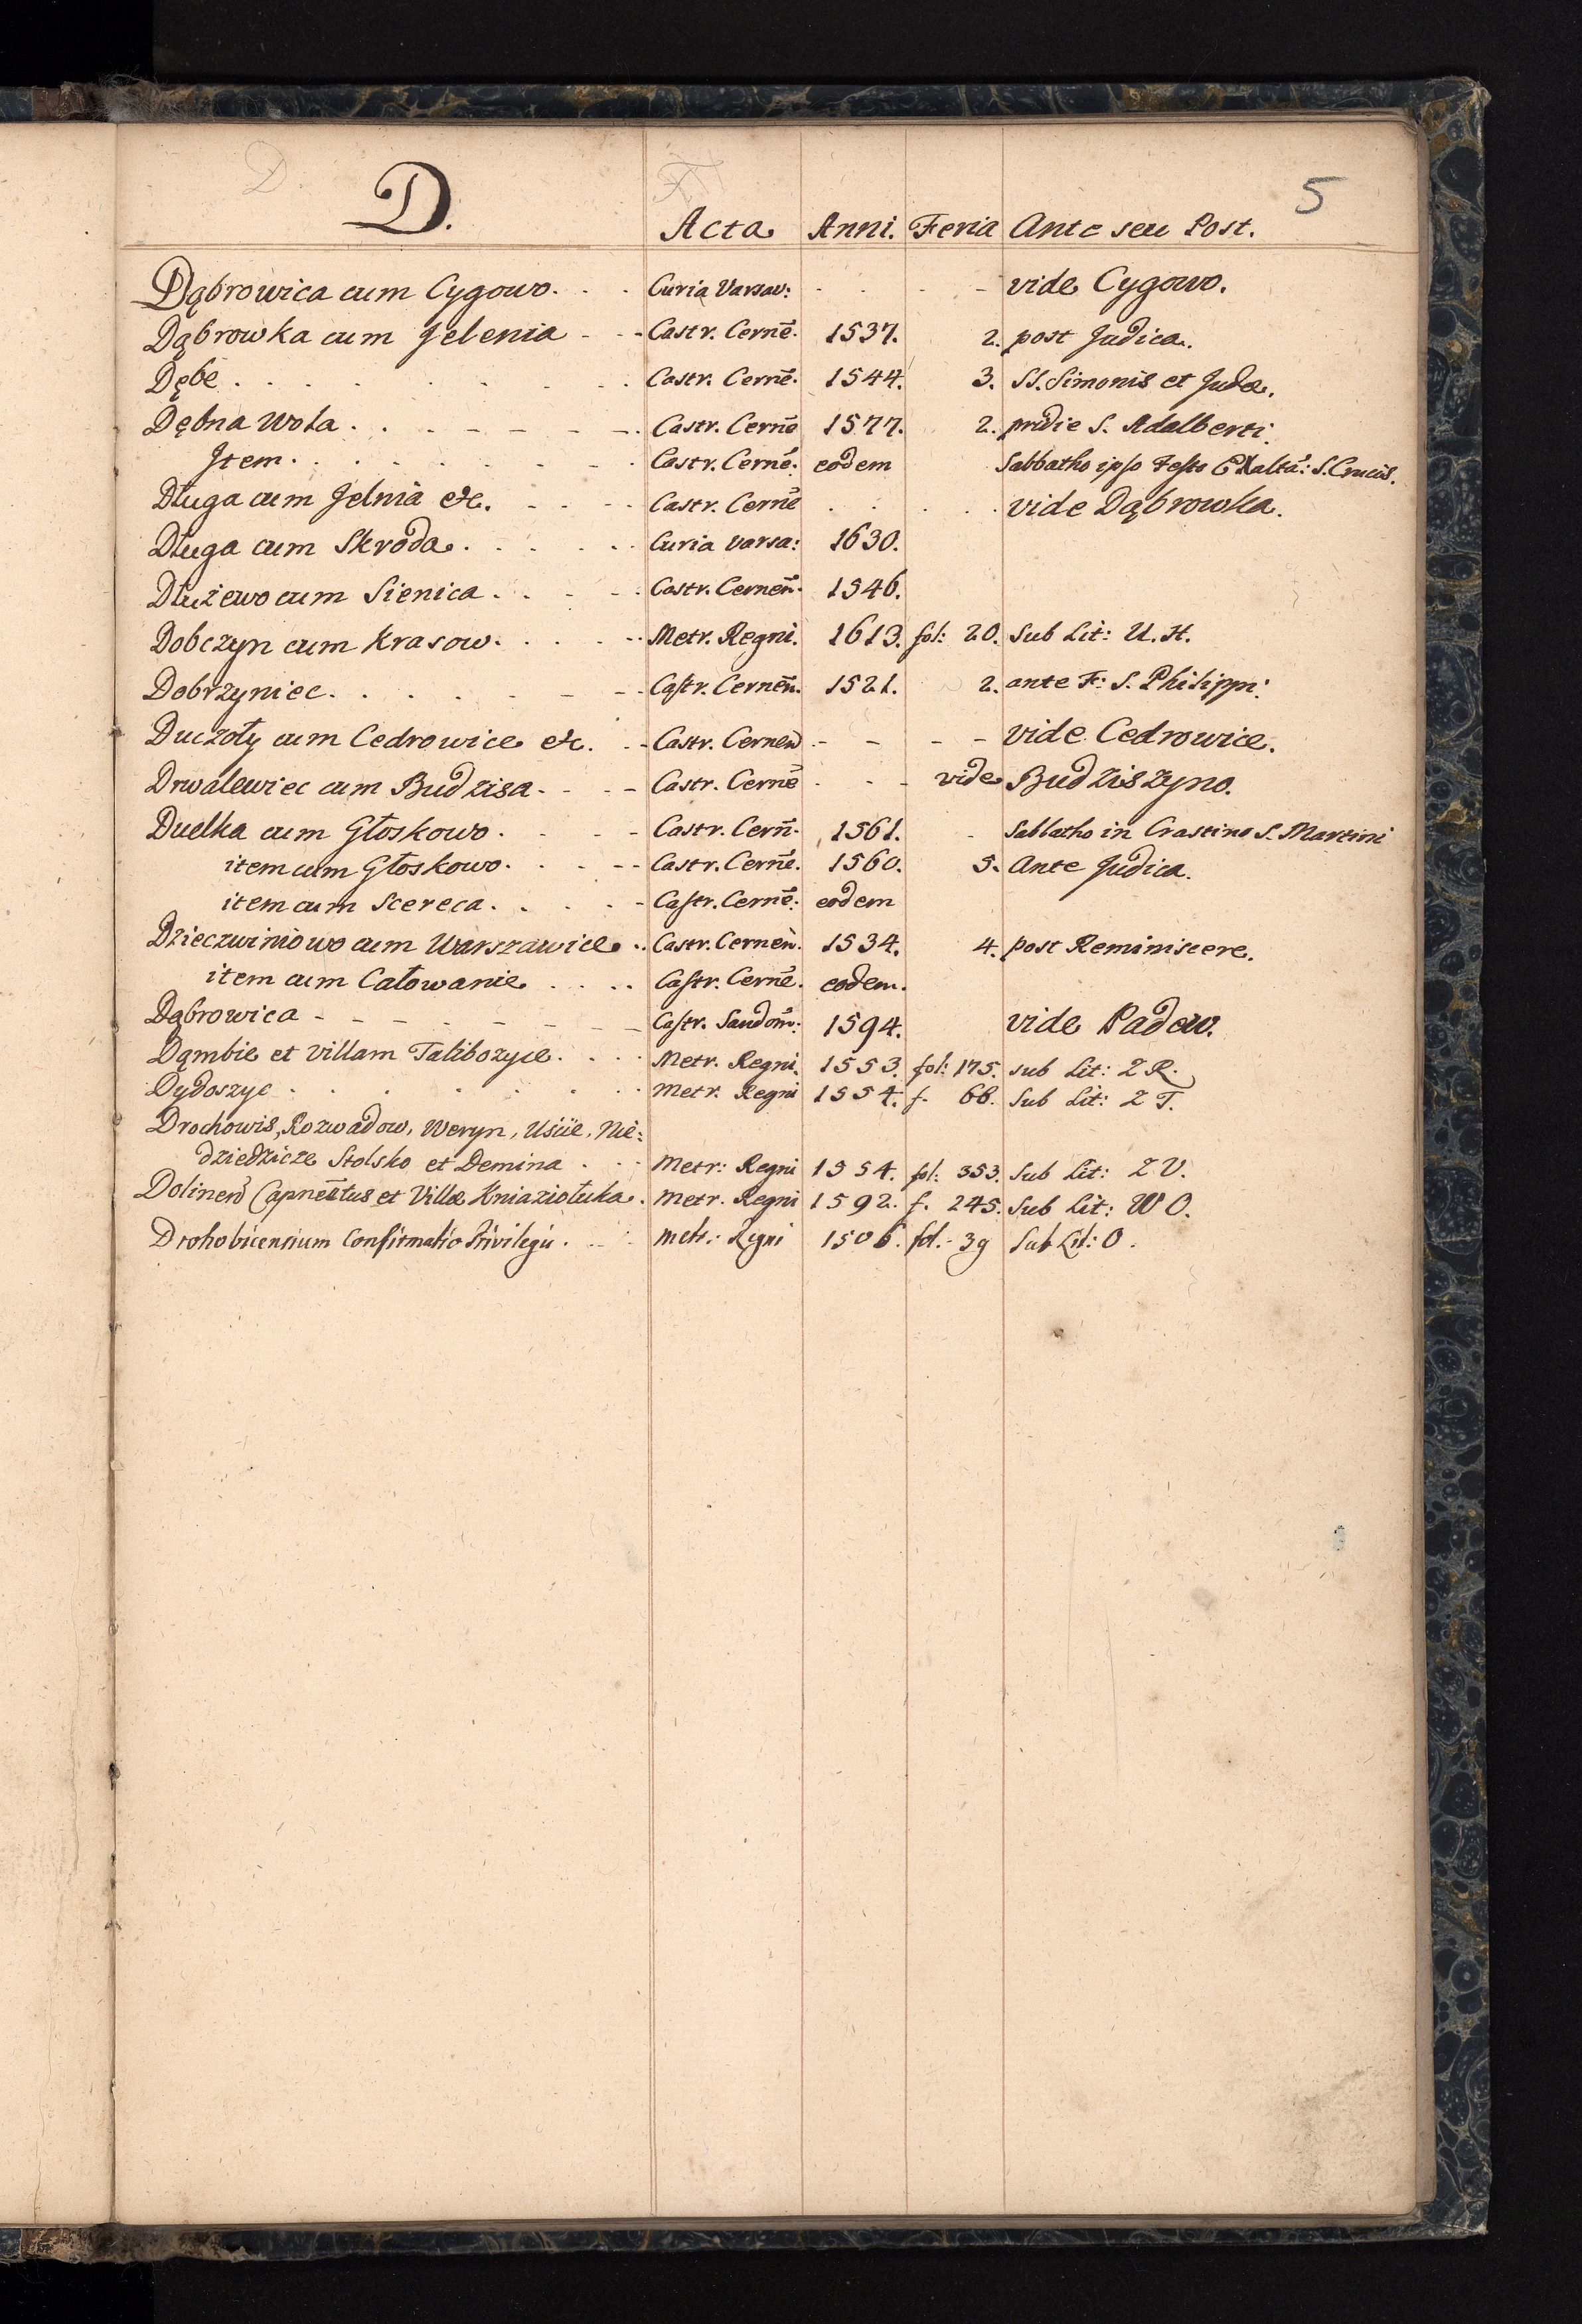 5
D.
Acta Anni. Feria Ante seu Post.
Dąbrowica cum Cygowo. . . Curia Varsav: . . . - vide Cygowo.
Dąbrowka cum Jelenia - - - Castr. Cernē. 1537. 2. post Judica.
Dębe . . . . . . . . Castr. Cernē. 1544. 3. SS. Simonis et Judæ.
Dębna Wola . . . - - - - Castr. Cernē 1577. 2. pridie S. Adalberti.
Item . . . . . . . . Castr. Cernē. eodem Sabbatho ipso Festo Exalta: S. Crucis.
Długa cum Jelnia etc. - - - Castr. Cernē . . . . . vide Dąbrowka.
Długa cum Skroda . . . . . Curia Varsa: 1630.
Dłużewo cum Sienica . . - - . Castr. Cerneñ. 1546.
Dobczyn cum Krasow . . . . . Metr. Regni. 1613. fol: 20. Sub Lit: U. H.
Dobrzyniec . . . . . - - - Castr. Cerneñ. 1521. 2. ante F: S. Philippi.
Duczoły cum Cedrowice etc. . - Castr. Cernen - - - - vide Cedrowice.
Drwalewiec cum Budzisa - - - - Castr. Cernē - - - vide Budziszyno.
Duelka cum Głoskowo . . - - Castr. Cerñ. 1561. - Sabbatho in Crastino S. Martini
item cum Głoskowo . . - - - Castr. Cernē. 1560. 5. Ante Judica.
item cum Scereca . . . . - Castr. Cernē: eodem
Dzieczwiniowo cum Warszawice . . Castr. Cerneñ. 1534. 4. post Reminiscere.
item cum Całowanie . . . . Castr. Cernē. eodem.
Dąbrowica - - - - - - - - Castr. Sandom: 1594. vide Padew.
Dąmbie et villam Talibozyce . . . . Metr. Regni. 1553. fol: 175. sub Lit: Z R.
Dydoszyc . . . . . . . . Metr. Regni 1554. f. 66. Sub Lit: Z T.
Drochowis, Rozwadow, Weryn, Uście, Nie=
dziedzicze Stolsko et Demina . . . Metr: Regni 1554. fol: 353. Sub Lit: Z V.
Dolinen Capneatus et Villæ Kniaziołuka . Metr. Regni 1592. f. 245. Sub Lit: W O.
Drohobicensium Confirmatio Privilegii . . . metr: Regni 1506. fol: 39 Sub Lit: O.